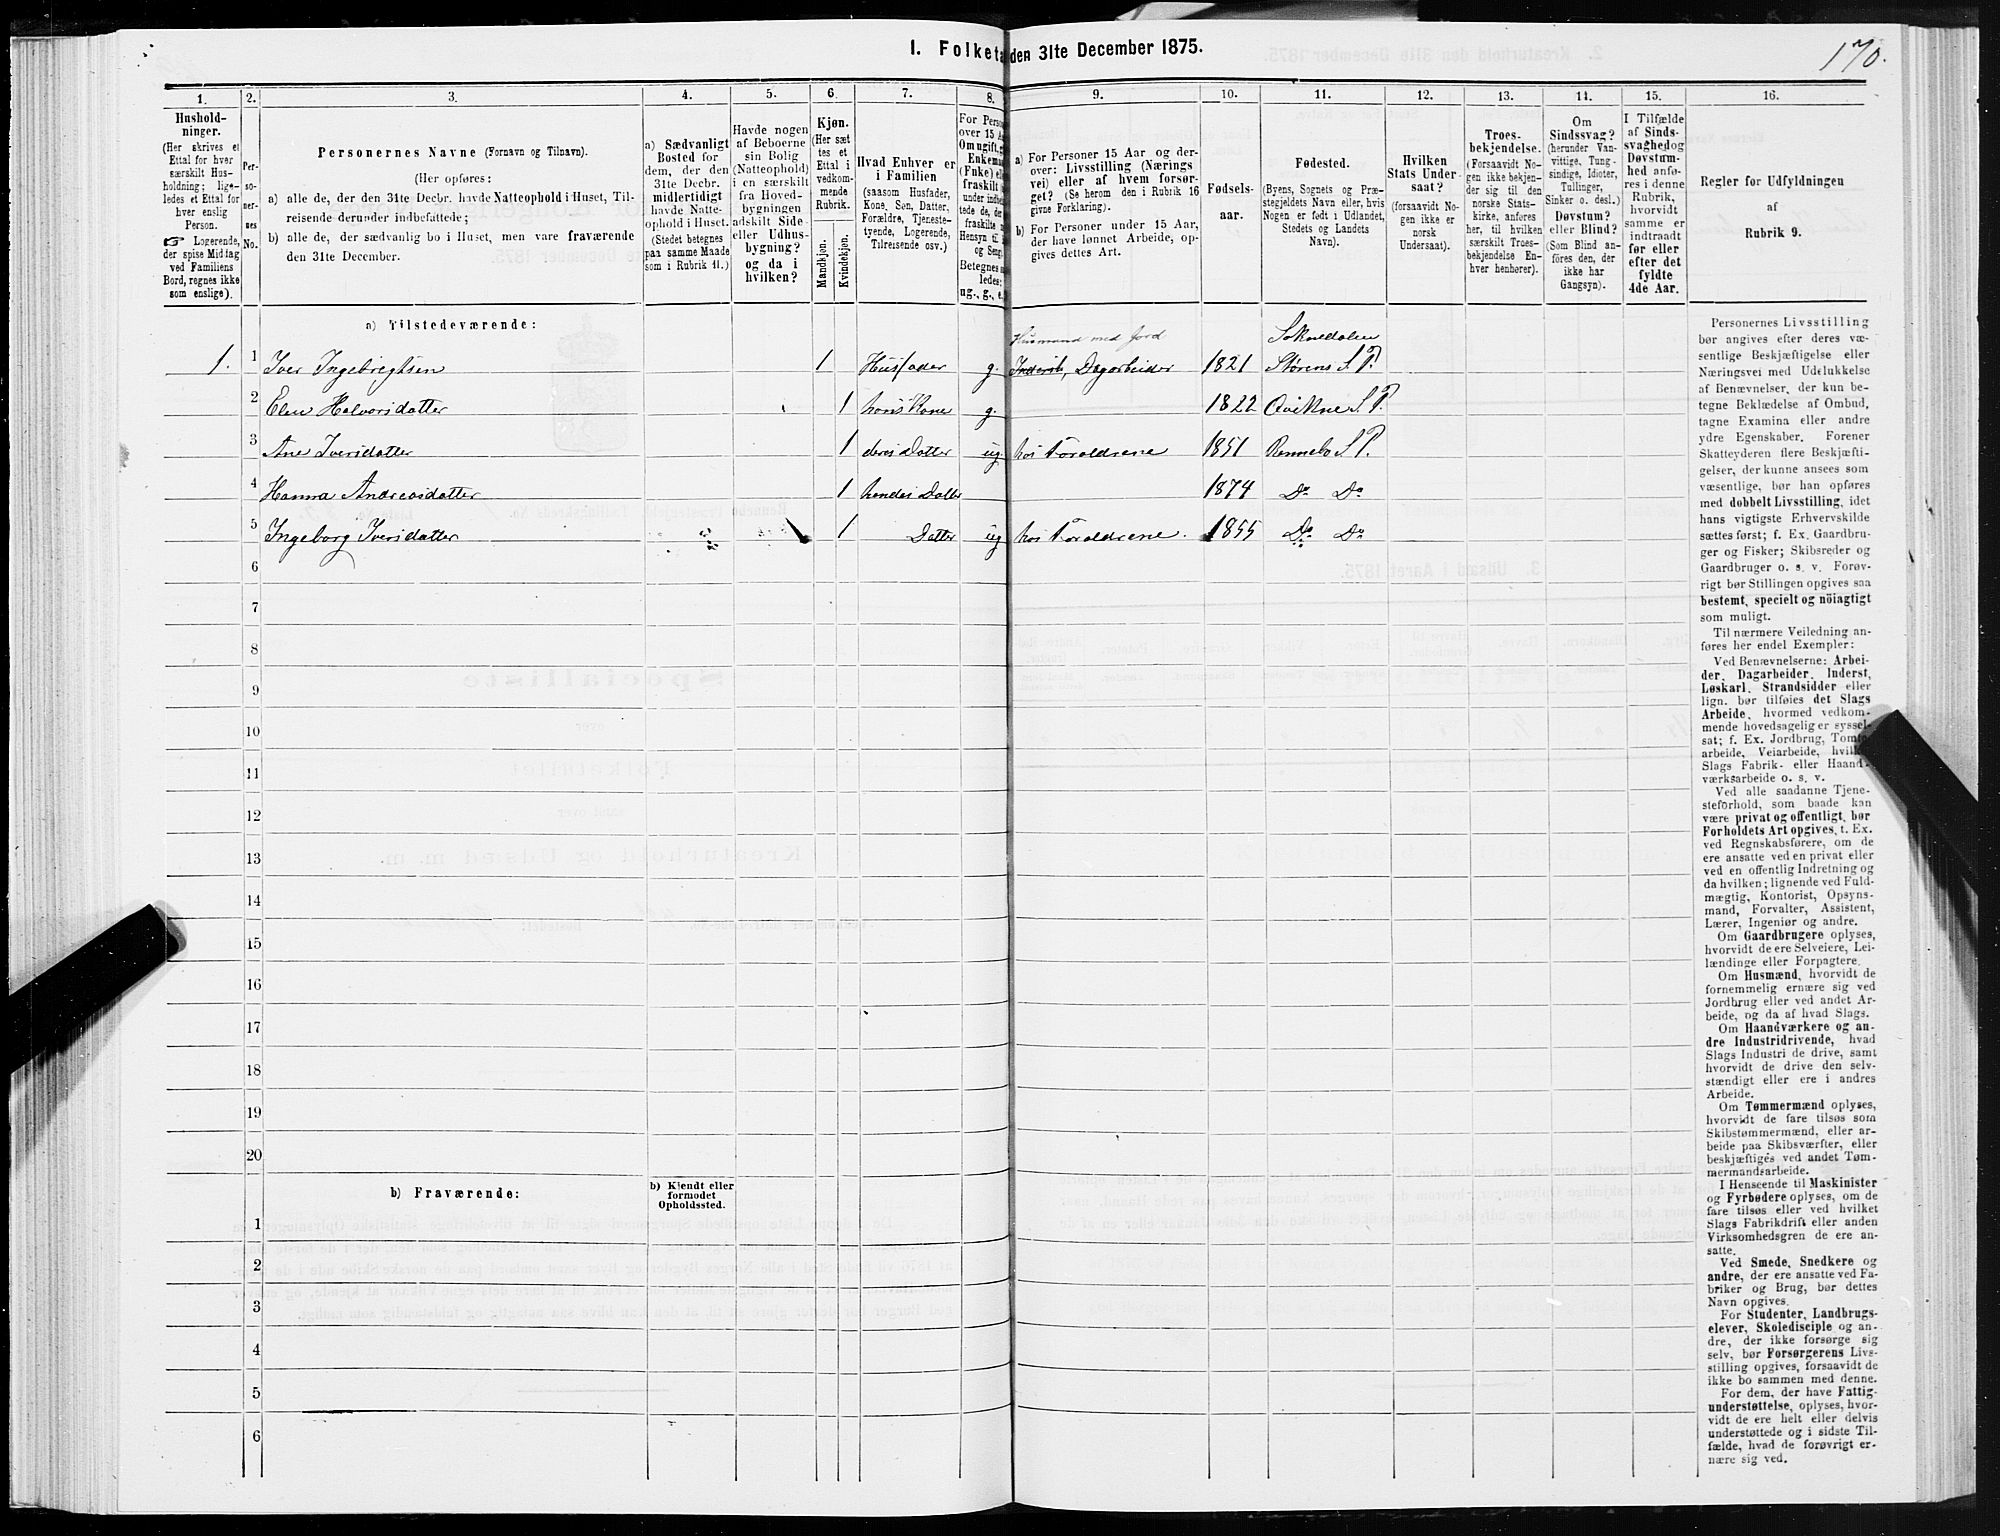 1. Folketa den 31te December 1875.
170.
1. 2. 3. 4. 5. 6. 7. 8. 9. 10. 11. 12. 13. 14. 15. 16.
Hushold-
ninger.
(Her skrives et
Ettal for hver
særskilt Hus-
holdning; lige-
ledes et Ettal for
hver enslig
Person.
☞ Logerende,
der spise Middag
ved Familiens
Bord, regnes ikke
som enslige).
Per-
so-
ner-
nes
No.
Personernes Navne (Fornavn og Tilnavn).
(Her opføres:
a) alle de, der den 31te Decbr. havde Natteophold i Huset, Til-
reisende derunder indbefattede;
b) alle de, der sædvanlig bo i Huset, men vare fraværende
den 31te December.
a) Sædvanligt
Bosted for
dem, der den
31te Decbr.
midlertidigt
havde Natte-
ophold i Huset.
(Stedet betegnes
paa samme Maade
som i Rubrik 11.)
Havde nogen
af Beboerne
sin Bolig
(Natteophold)
i en særskilt
fra Hoved-
bygningen
adskilt Side-
eller Udhus-
bygning?
og da i
hvilken?
Kjøn.
(Her sæt
tes et
Ettal i
vedkom-
mende
Rubrik.
Mandkjøn.
Kvindekjøn.
Hvad Enhver er
i Familien
(saasom Husfader,
Kone, Søn, Datter,
Forældre, Tjeneste-
tyende, Logerende,
Tilreisende osv.)
For Perso
over 15 A
Om ugift, g
Enkema
(Fuke) el
fraskilt
under indbe
tede de, de
fraskilte
Hensyn til
og Seng.
Betegnes
ledes:
ug., g., e.
a) For Personer 15 Aar og der-
over: Livsstilling (Nærings
vei) eller af hvem forsør-
get? (Se herom den i Rubrik 16
givne Forklaring).
b) For Personer under 15 Aar,
der have lønnet Arbeide, op-
gives dettes Art.
Fødsels-
aar.
Fødested.
(Byens, Sognets og Præ-
stegjeldets Navn eller, hvis
Nogen er født i Udlandet,
Stedets og Landets
Navn).
Hvilken
Stats Under-
saat?
(forsaavidt No-
gen ikke er
norsk
Undersaat).
Troes-
bekjendelse.
(Forsaavidt No-
gen ikke bekjen-
der sig til den
norske Stats-
kirke, anføres
her, til hvilken
særskilt Troes-
bekjendelse En-
hver henhører).
Om
Sindssvag?
(herunder Van-
vittige, Tung-
sindige, Idioter,
Tullinger,
Sinker o. desl.)
Døvstum?
eller Blind?
(Som Blind an-
føres den, der
ikke har
Gangsyn).
I Tilfælde
af Sinds-
svaghed og
Døvstum-
hed anfø-
res i denne
Rubrik,
hvorvidt
samme er
indtraadt
før eller
efter det
fyldte
4de Aar.
Regler for Udfyldningen
af
Rubrik 9.
a) Tilstedeværende:
Husmand med Jord Soknedalen
1. 1 Iver Ingebrigtsen 1 Husfader g. Inderst, Dagarbeider 1821 Størens S P.
2 Elen Halvorsdatter 1 hans Kone g. 1822 Qvikne S P.
3 Ane Iversdatter 1 deres Datter ug. hos Forældrene 1851 Rennebo S P.
4 Hanna Andreasdatter 1 hendes Datter 1874 Do Do
5 Ingeborg Iversdatter 1 Datter ug hos Forældrene. 1855 Do Do
6
7
8
9
10
11
12
13
14
15
16
17
18
19
20
b) Fraværende:
b) Kjendt eller
formodet
Opholdssted.
1
2
3
4
5
6
Personernes Livsstilling
bør angives efter deres væ-
sentlige Beskjæftigelse eller
Næringsvei med Udelukkelse
af Benævnelser, der kun be-
tegne Beklædelse af Ombud,
tagne Examina eller andre
ydre Egenskaber. Forener
Skatteyderen flere Beskjæfti-
gelser, der kunne ansees som
væsentlige, bør han opgives
med dobbelt Livsstilling, idet
hans vigtigste Erhvervskilde
sættes først; f. Ex. Gaardbru-
ger og Fisker; Skibsreder og
Gaardbruger o. s. v. Forøv-
rigt bør Stillingen opgives saa
bestemt, specielt og nöiagtigt
som muligt.
Til nærmere Veiledning an-
føres her endel Exempler:
Ved Benævnelserne: Arbei-
der, Dagarbeider, Inderst,
Løskarl, Strandsidder eller
lign. bør tilføies det Slags
Arbeide, hvormed vedkom-
mende hovedsagelig er syssel-
sat; f. Ex. Jordbrug, Tomte-
arbeide, Veiarbeide, hvilket
Slags Fabrik- eller Haand-
værksarbeide o. s. v.
Ved alle saadanne Tjene-
steforhold, som baade kan
være privat og offentligt, bør
Forholdets Art opgives, t. Ex.
ved Regnskabsførere, om de
ere ansatte ved en privat eller
ved en offentlig Indretning og
da hvilken; lignende ved Fuld-
mægtig, Kontorist, Opsyns-
mand, Forvalter, Assistent,
Lærer, Ingeniør og andre.
Om Gaardbrugere oplyses,
hvorvidt de ere Selveiere, Lei-
lændinge eller Forpagtere.
Om Husmænd, hvorvidt de
fornemmelig ernære sig ved
Jordbrug eller ved andet Ar-
beide, og da af hvad Slags.
Om Haandværkere og an-
dre Industridrivende, hvad
Slags Industri de drive, samt
hvorvidt de drive den selv-
stændigt eller ere i andres
Arbeide.
Om Tømmermænd oplyses,
hvorvidt de fare tilsøs som
Skibstømmermænd, eller ar-
beide paa Skibsværfter, eller
beskjæftiges ved andet Tøm-
mermandsarbeide.
I Henseende til Maskinister
og Fyrbødere oplyses, om de
fare tilsøs eller ved hvilket
Slags Fabrikdrift eller anden
Virksomhedsgren de ere an-
satte.
Ved Smede, Snedkere og
andre, der ere ansatte ved Fa-
briker og Brug, bør dettes
Navn opgives.
For Studenter, Landbrugs-
elever, Skoledisciple og an-
dre, der ikke forsørge sig
selv, bør Forsørgerens Livs-
stilling opgives, forsaavidt de
ikke bo sammen med denne.
For dem, der have Fattig-
understøttelse, oplyses, hvor-
vidt de ere helt eller delvis
understøttede og i sidste Til-
fælde, hvad de forøvrigt er-
nære sig ved.